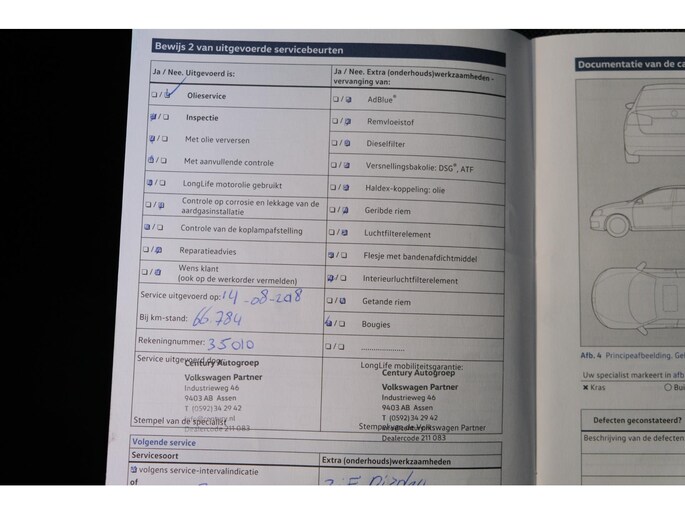 Bewijs 2 van uitgevoerde servicebeurten
Ja / Nee. Uitgevoerd is:
Olieservice
Inspectie
Met olie verversen
Met aanvullende controle
LongLife motorolie gebruikt
Controle op corrosie en lekkage van de
aardgasinstallatie
Controle van de koplampafstelling
Reparatieadvies
Wens klant
(ook op de werkorder vermelden)
Service uitgevoerd op: 14-08-2018
Bij km-stand: 66.784
Rekeningnummer: 35010
Service uitgevoerd door:
Century Autogroep
Volkswagen Partner
Industrieweg 46
9403 AB Assen
T (0592) 34 29 42
Stempel van de specialist
Dealercode 211 083
Ja / Nee. Extra (onderhouds)werkzaamheden -
vervanging van:
AdBlue®
Remvloeistof
Dieselfilter
Versnellingsbakolie: DSG®, ATF
Haldex-koppeling: olie
Geribde riem
Luchtfilterelement
Flesje met bandenafdichtmiddel
Interieurluchtfilterelement
Getande riem
Bougies
....................
LongLife mobiliteitsgarantie:
Century Autogroep
Volkswagen Partner
Industrieweg 46
9403 AB Assen
T (0592) 34 29 42
Stempel van de Volkswagen Partner
Dealercode 211 083
Volgende service
Servicesoort
volgens service-intervalindicatie
of
Extra (onderhouds)werkzaamheden
Documentatie van de ca
Afb. 4 Principeafbeelding. Gel
Uw specialist markeert in afb
× Kras
Bui
Defecten geconstateerd?
Beschrijving van de defecten